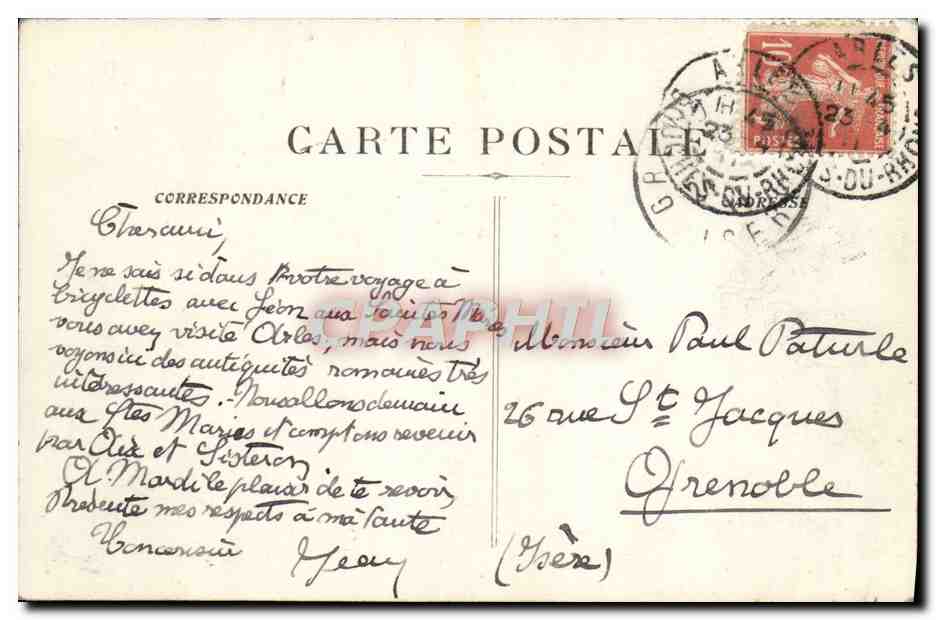 CARTE POSTALE
CORRESPONDANCE
ADRESSE
10
POSTES
ARLES
11 45
23
S-DU-RHONE
GR
ISER
Cher ami,
Je ne sais si dans votre voyage à
bicyclettes avec Léon aux Saintes Maries
vous avez visité Arles, mais nous
voyons ici des antiquités romaines très
intéressantes. Nous allons demain
aux Stes Maries et comptons revenir
par Aix et Sisteron
A Mardi le plaisir de te revoir,
Présente mes respects à ma tante
Ton cousin
Jean
Monsieur Paul Paturle
26 rue St Jacques
Grenoble
(Isère)
CPAPHIL